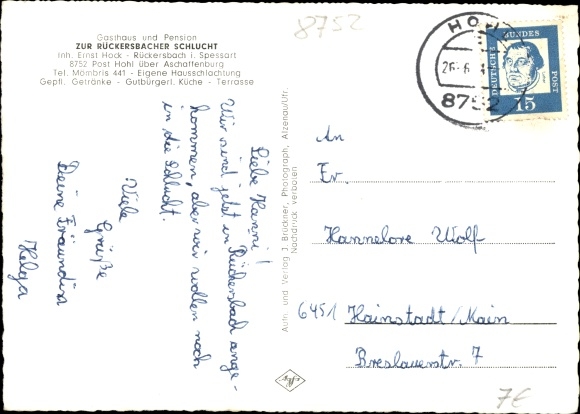 8752
Gasthaus und Pension
ZUR RÜCKERSBACHER SCHLUCHT
Inh. Ernst Hock - Rückersbach i. Spessart
8752 Post Hohl über Aschaffenburg
Tel. Mömbris 441 - Eigene Hausschlachtung
Gepfl. Getränke - Gutbürgerl. Küche - Terrasse
HOHL
26.-6.
8752
DEUTSCHE BUNDESPOST
15
Liebe Hanni!
Wir sind jetzt in Rückersbach ange-
kommen, aber wir wollen noch
in die Schlucht.
Viele
Grüße
Deine Fräundin
Helga
Aufn. und Verlag J. Brückner, Photograph, Alzenau/Ufr.
Nachdruck verboten
An
Fr.
Hannelore Wolf
6451 Hainstadt/Main
Breslauerstr. 7
7€